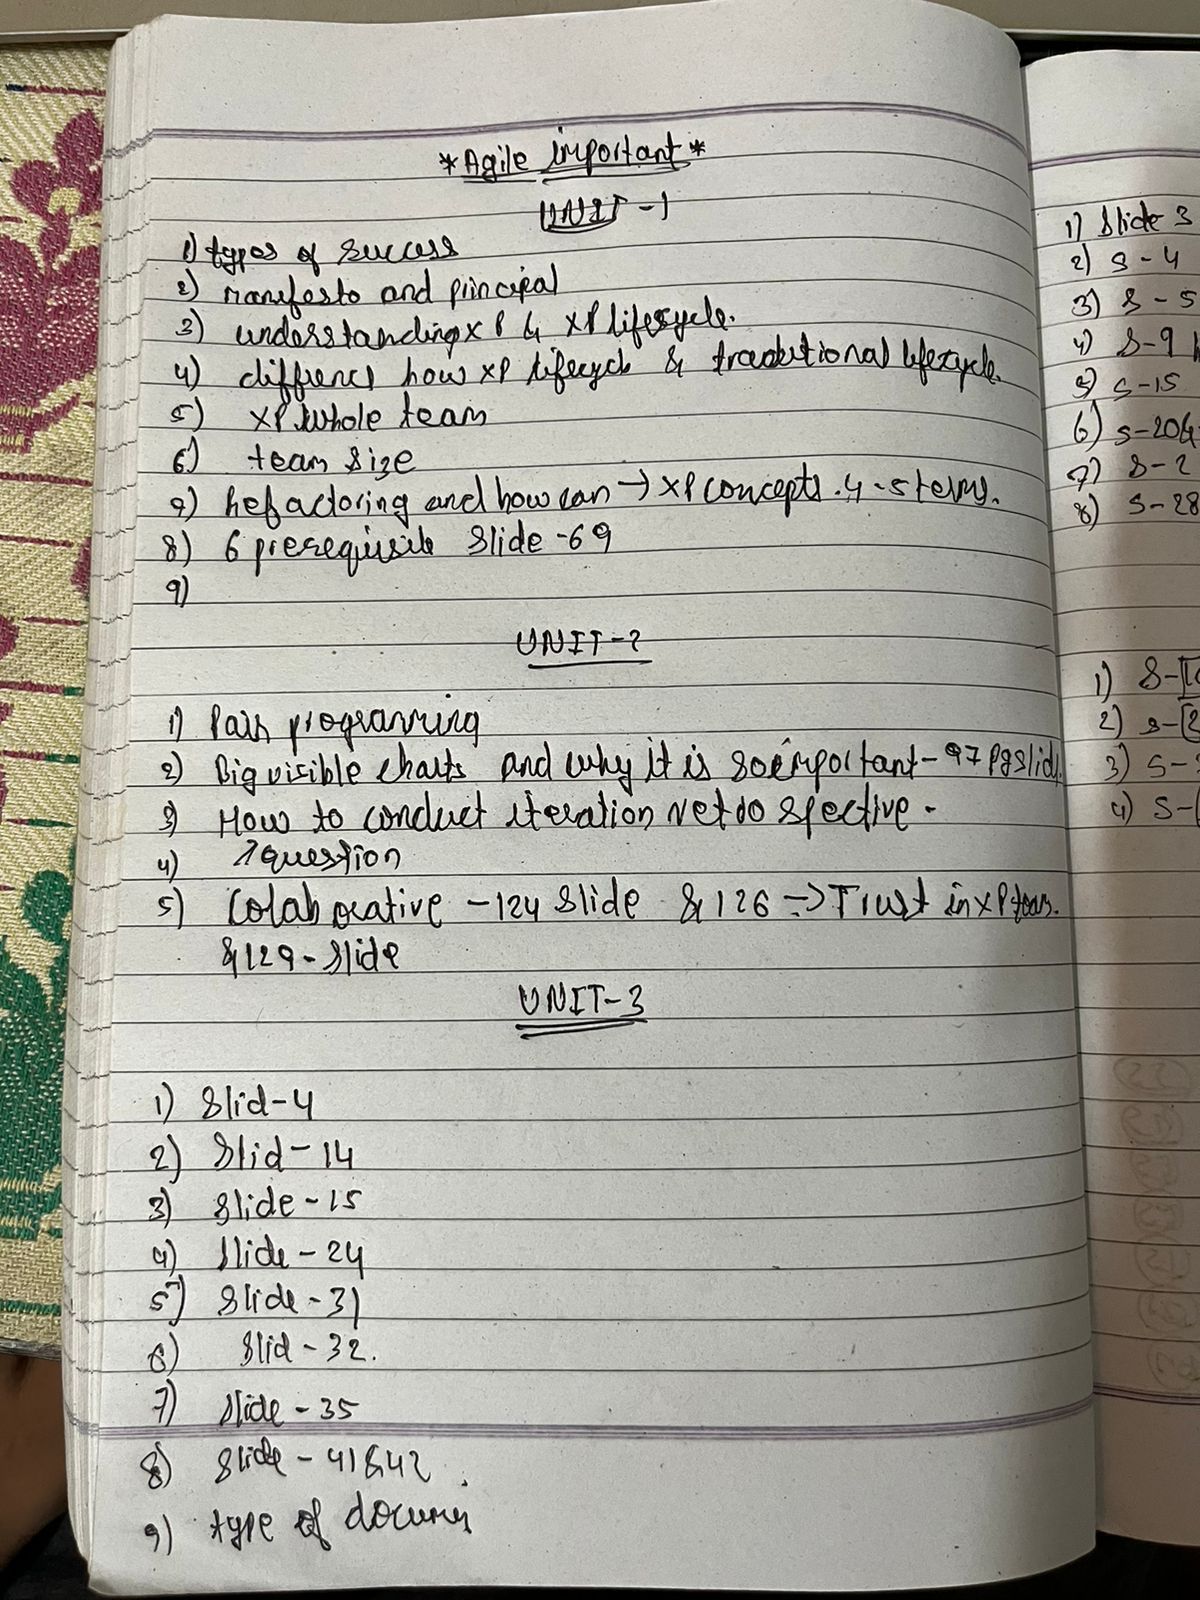 *Agile important*
UNIT-1
1) types of success
2) manifesto and principal
3) understanding XP & XP lifecycle.
4) diffrence how XP lifecycle & traditional lifecycle.
5) XP whole team
6) team size
7) Refactoring and how can → XP concepts. 4-5 terms.
8) 6 prerequisite slide-69
9)
UNIT-2
1) Pair programming
2) Big visible charts and why it is so important - 97 pg slide
3) How to conduct iteration retrospective -
4) question
5) Colaborative - 124 slide & 126 → Trust in XP team.
& 129 - slide
UNIT-3
1) Slid-4
2) Slid-14
3) Slide-15
4) Slide-24
5) Slide-31
6) Slid-32.
7) Slide-35
8) Slide-41 & 42
9) type of
1) Slide 3
2) S-4
3) S-5
4) S-9
5) S-15
6) S-20&
7) S-2
8) S-28
1) S-
2) S-
3) S-
4) S-